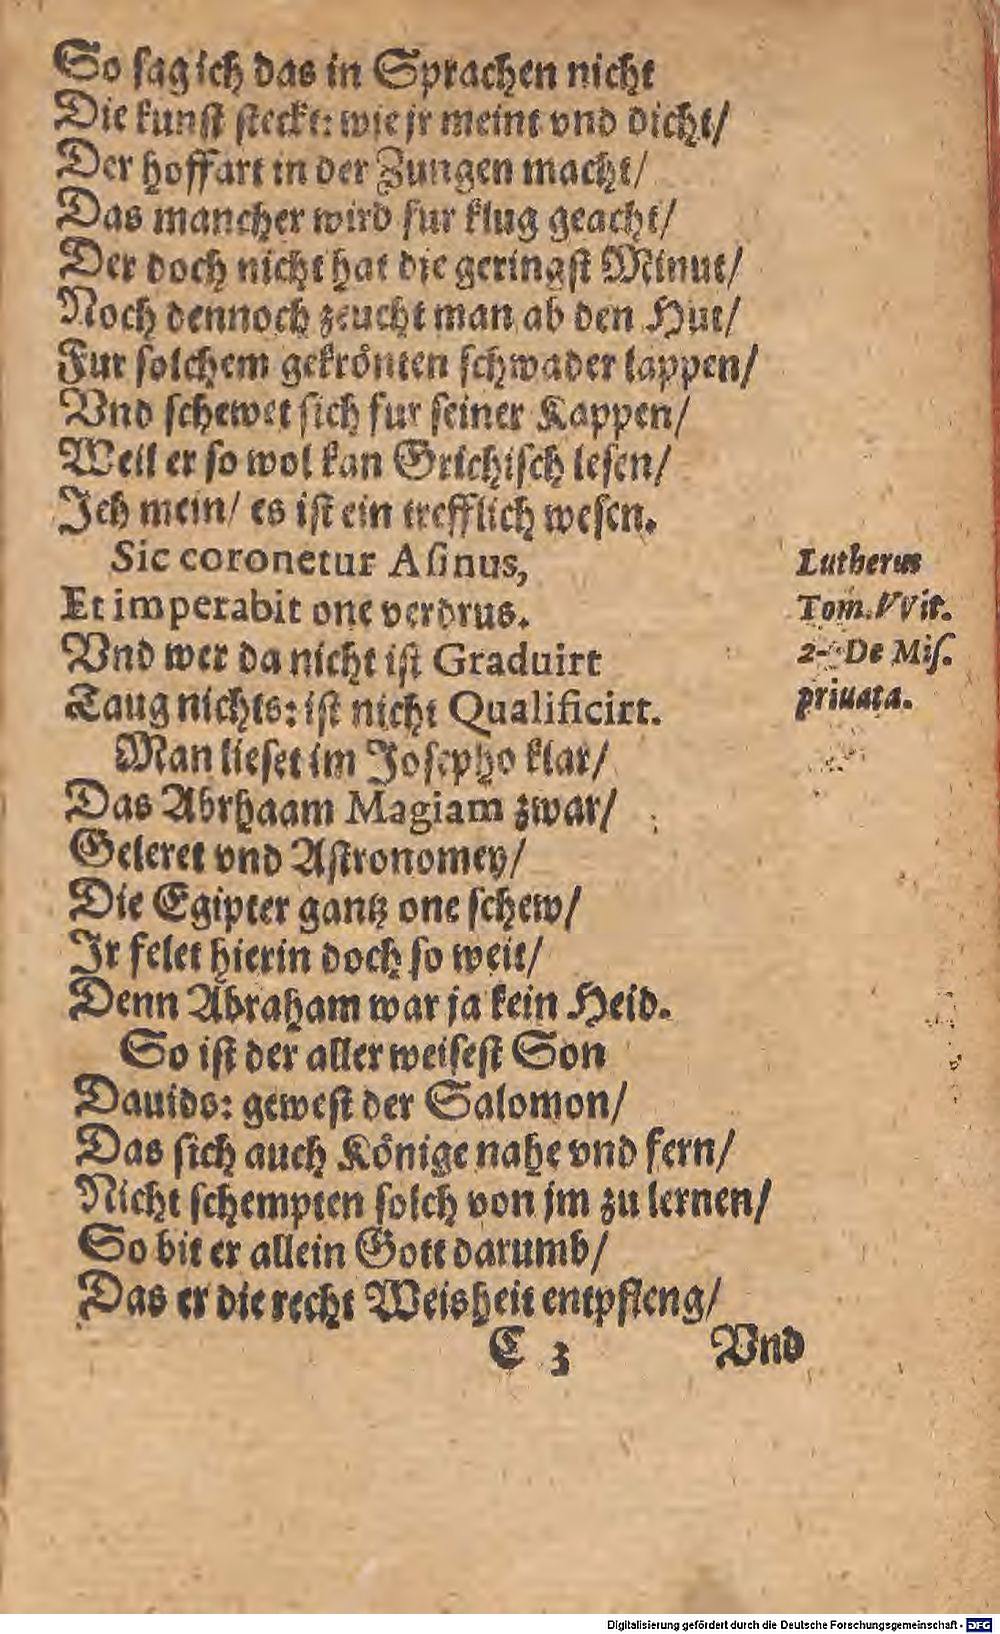 So sag ich das in Sprachen nicht
Die kunst steckt: wie jr meint vnd dicht/
Der hoffart in der Zungen macht/
Das mancher wird fur klug geacht/
Der doch nicht hat die geringst Minut/
Noch dennoch zeucht man ab den Hut/
Fur solchem gekrönten schwader lappen/
Vnd schewet sich fur seiner Kappen/
Weil er so wol kan Grichisch lesen/
Ich mein/ es ist ein trefflich wesen.
Sic coronetur Asinus,
Et imperabit one verdrus.
Vnd wer da nicht ist Graduirt
Taug nichts: ist nicht Qualificirt.
Lutherus
Tom. VVit.
2. De Mis.
priuata.
Man lieset im Josepho klar/
Das Abrhaam Magiam zwar/
Geleret vnd Astronomey/
Die Egipter gantz one schew/
Ir felet hierin doch so weit/
Denn Abraham war ja kein Heid.
So ist der aller weisest Son
Dauids: gewest der Salomon/
Das sich auch Könige nahe vnd fern/
Nicht schempten solch von jm zu lernen/
So bit er allein Gott darumb/
Das er die recht Weisheit entpfieng/
C 3 Vnd
Digitalisierung gefördert durch die Deutsche Forschungsgemeinschaft - DFG